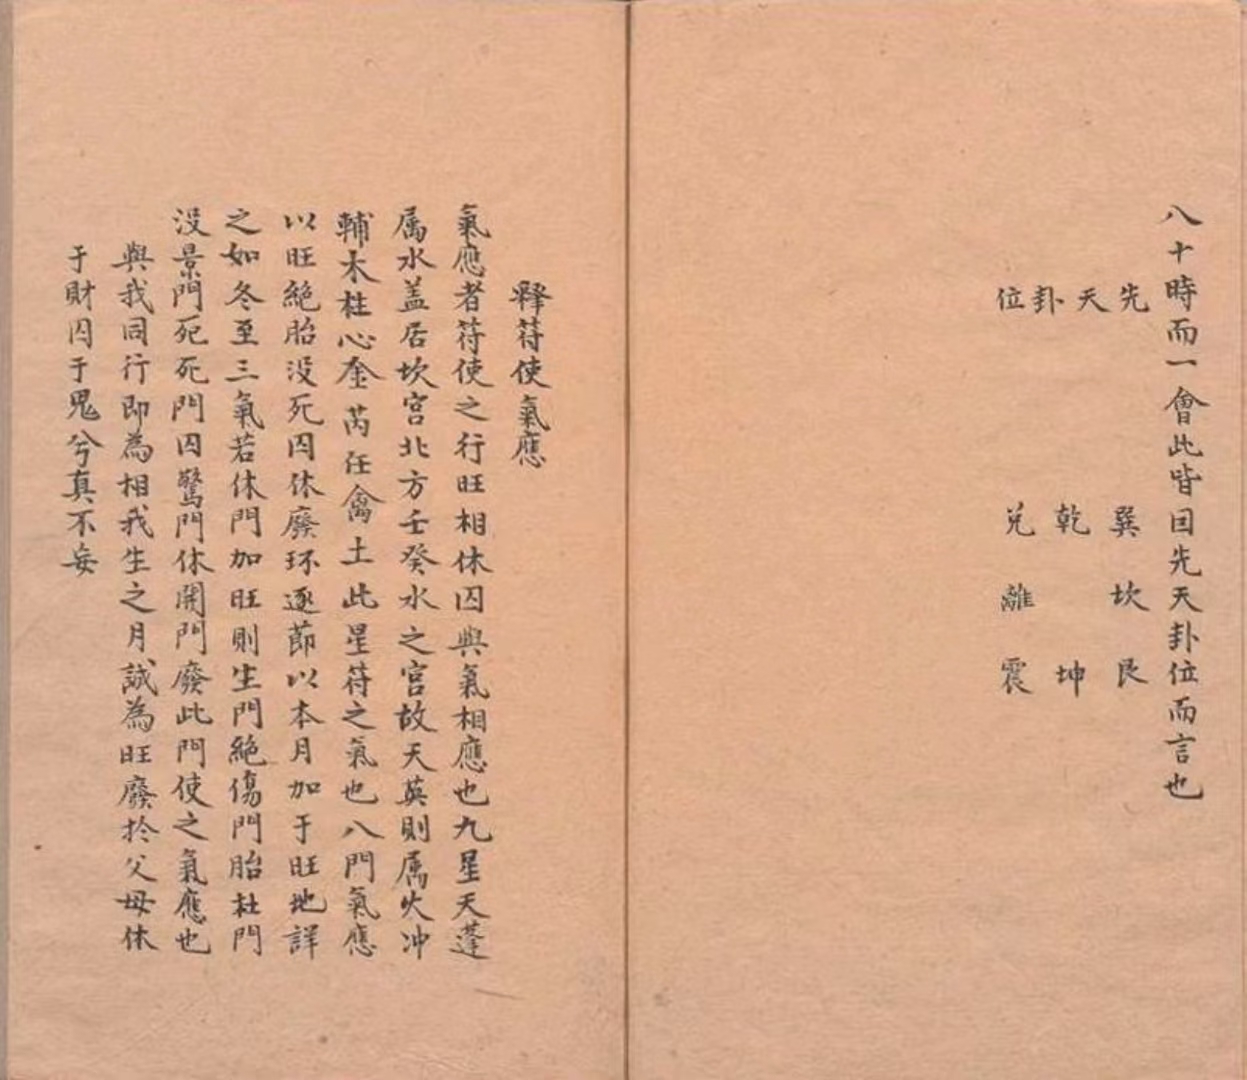 八十時而一會此皆因先天卦位而言也
先天卦位
巽 坎 艮
乾 坤
兑 離 震
釋苻使氣應
氣應者苻使之行旺相休囚與氣相應也九星天蓬
属水盖居坎宮北方壬癸水之宮故天英則属火冲
輔木柱心金芮任禽土此星苻之氣也八門氣應
以旺絶胎没死囚休廢环逐節以本月加于旺地詳
之如冬至三氣若休門加旺則生門絶傷門胎杜門
没景門死死門囚驚門休開門廢此門使之氣應也
與我同行即為相我生之月誠為旺廢扵父母休
于財囚于鬼兮真不妄